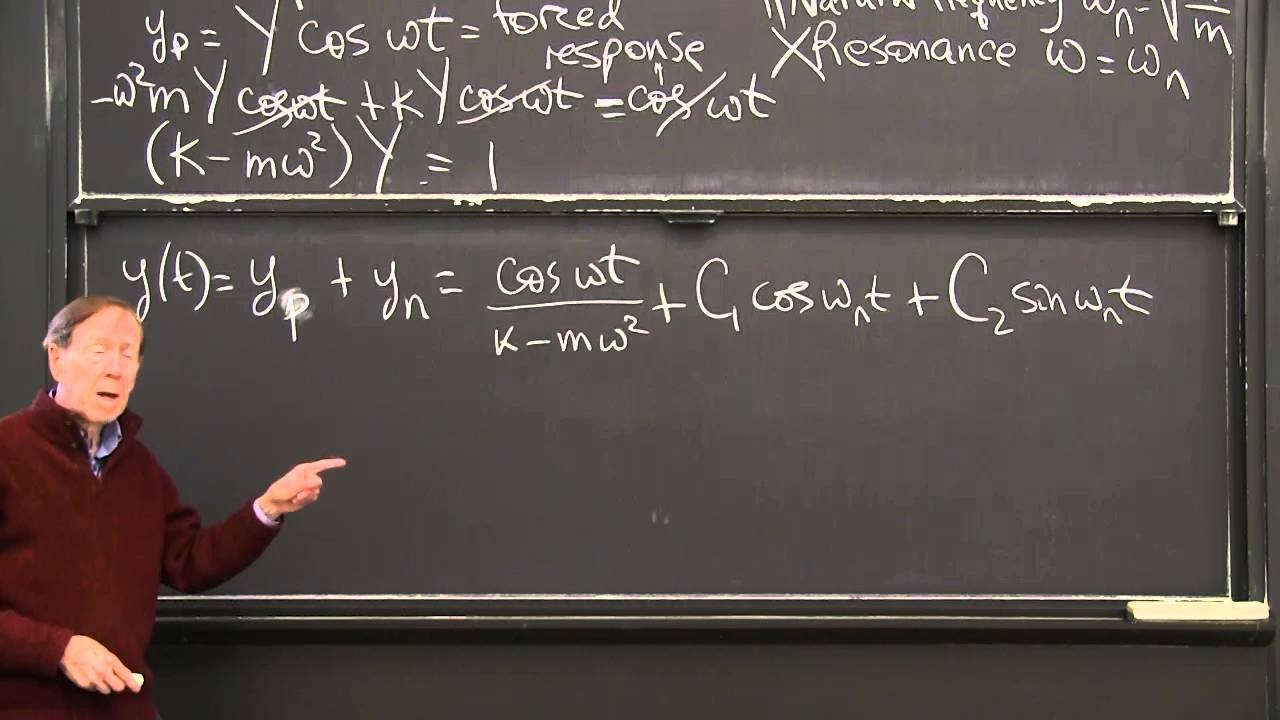 yₚ = Y cos ωt = forced response
"Natural frequency ωₙ = √ /m
XResonance ω = ωₙ
-ω²m Y cosωt + kY cosωt = cos ωt
(k - mω²)Y = 1
y(t) = yₚ + yₙ = cos ωt / (k - mω²) + C₁ cos ωₙt + C₂ sin ωₙt